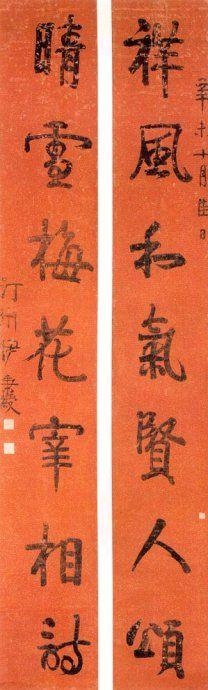 辛未十月佳日
祥風和氣賢人頌
晴雪梅花宰相詩
汀州伊秉綬